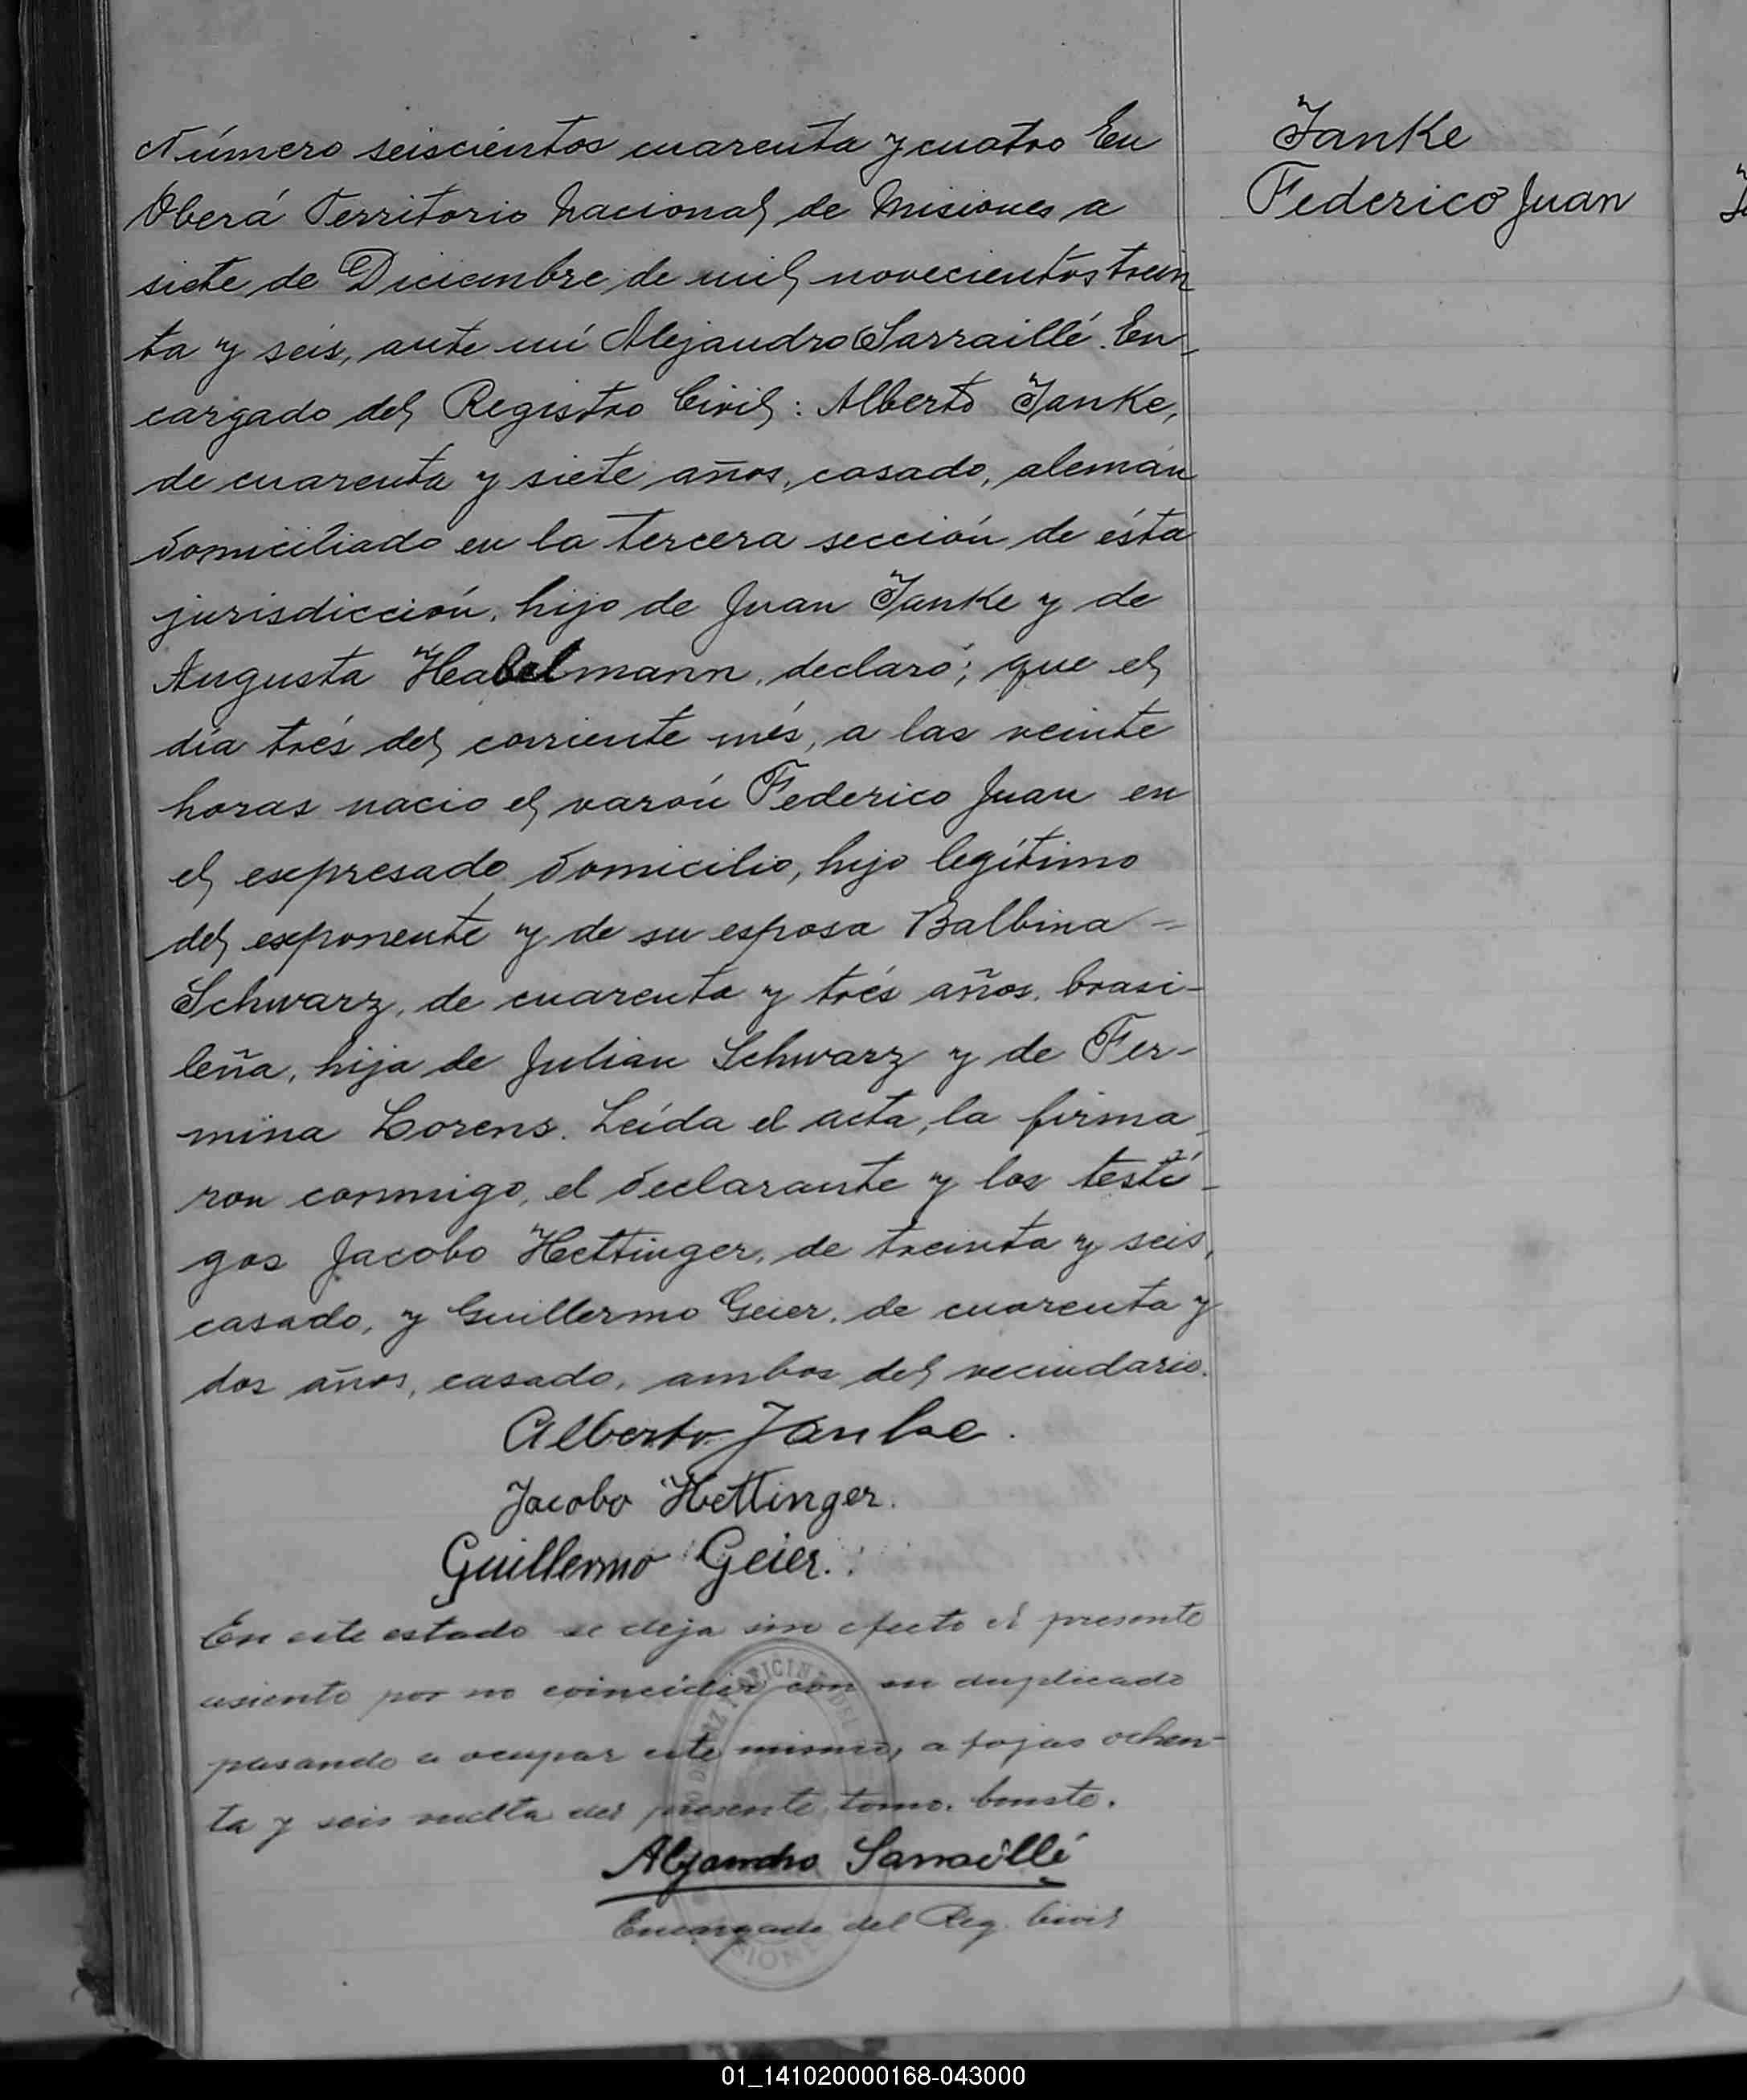 Número seiscientos cuarenta y cuatro En
Oberá Territorio Nacional de Misiones a
siete de Diciembre de mil novecientos trein
ta y seis, ante mí Alejandro Sarraillé. En-
cargado del Registro Civil: Alberto Janke,
de cuarenta y siete años, casado, alemán
domiciliado en la tercera sección de ésta
jurisdicción, hijo de Juan Janke y de
Augusta Habelmann, declaró; que el
día trés del corriente més, a las veinte
horas nacio el varón Federico Juan en
el expresado domicilio, hijo legítimo
del exponente y de su esposa Balbina =
Schwarz, de cuarenta y trés años, brasi-
leña, hija de Julian Schwarz y de Fer-
mina Lorens. Leída el acta, la firma-
ron conmigo, el declarante y los testi-
gos Jacobo Hettinger, de treinta y seis,
casado, y Guillermo Geier, de cuarenta y
dos años, casado, ambos del vecindario.
Alberto Janke.
Jacobo Hettinger.
Guillermo Geier.
En este estado se deja sin efecto el presente
asiento por no coincidir con su duplicado
pasando a ocupar este mismo, a fojas ochen-
ta y seis vuelta del presente tomo. Conste.
Alejandro Sarraillé
Encargado del Reg. Civil
Janke
Federico Juan
01_141020000168-043000